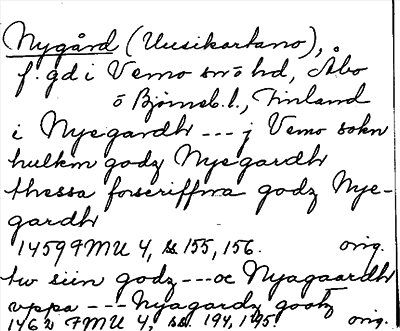 Nygård (Uusikartano),
f. gd i Vemo sn o hd, Åbo
o Björneb. l., Finland
i Nyegardh --- j Vemo sokn
hulkin godz Nyegardh
thessa forscriffna godz Nye-
gardh
1459 FMU 4, ss 155, 156. orig.
tw siin godz --- oc Nyagaardh
vppa --- Nyagardz godz
1462 FMU 4, ss. 194, 195. orig.